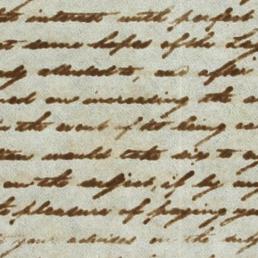 interest with perfect
same hopes of the Le
alluded to, me after
on increasing the a
in the event of its being re
would take up to
on the subject, if by any
pleasure of paying you
your advices on the sub